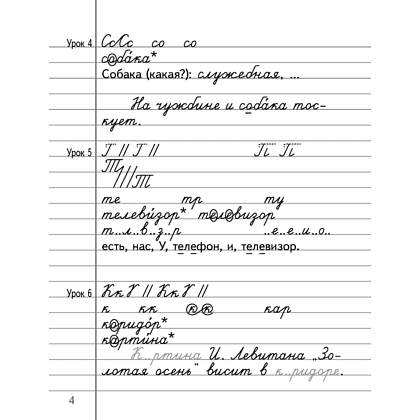 Урок 4 СсСс со со
собáка*
Собака (какая?): служебная, ...
На чужбине и собака тос-
кует.
Урок 5 Г // Г // П П
Т///Т
те тр ту
телевúзор* телевизор
т..л..в..з..р ..е..е..и..о..
есть, нас, У, телефон, и, телевизор.
Урок 6 КкК // КкК //
к кк кк кар
коридóр*
картúна*
К...ртина И. Левитана „Зо-
лотая осень" висит в к...ридоре.
4